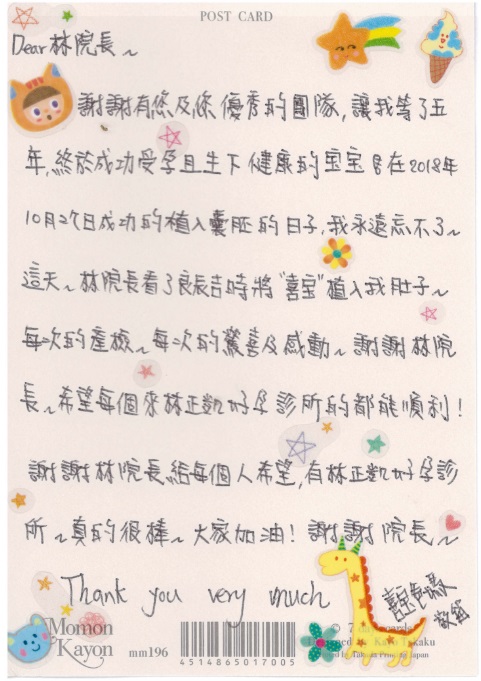 POST CARD
Dear 林院長~
謝謝有您及您優秀的團隊,讓我等了五
年,終於成功受孕且生下健康的宝宝!在2018年
10月27日成功的植入囊胚的日子,我永遠忘不了~
這天~林院長看了良辰吉時將"喜宝"植入我肚子~
每次的產檢~每次的驚喜及感動~謝謝林院
長~希望每個來林正凱好孕診所的都能順利!
謝謝林院長給每個人希望,有林正凱好孕診
所~真的很棒~大家加油!謝謝院長~
Thank you very much
喜宝
Momon
Kayon
mm196
4514865017005